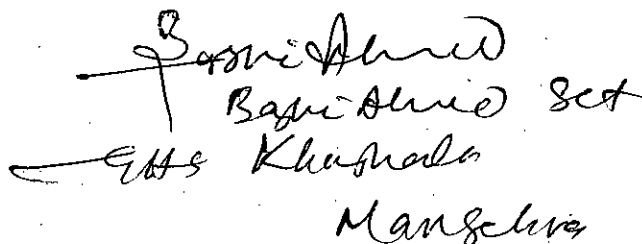 Bashir Ahmed
Bashir Ahmed SCT
GHS Khushala
Mansehra